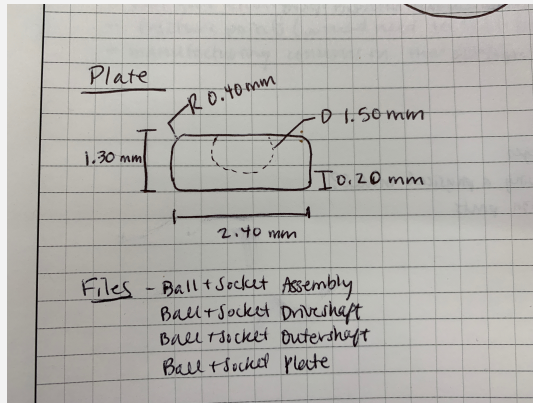 Plate
R 0.40mm
D 1.50mm
1.30 mm
0.20 mm
2.40 mm
Files - Ball+Socket Assembly
Ball+Socket Driveshaft
Ball+Socket Outershaft
Ball+Socket Plate